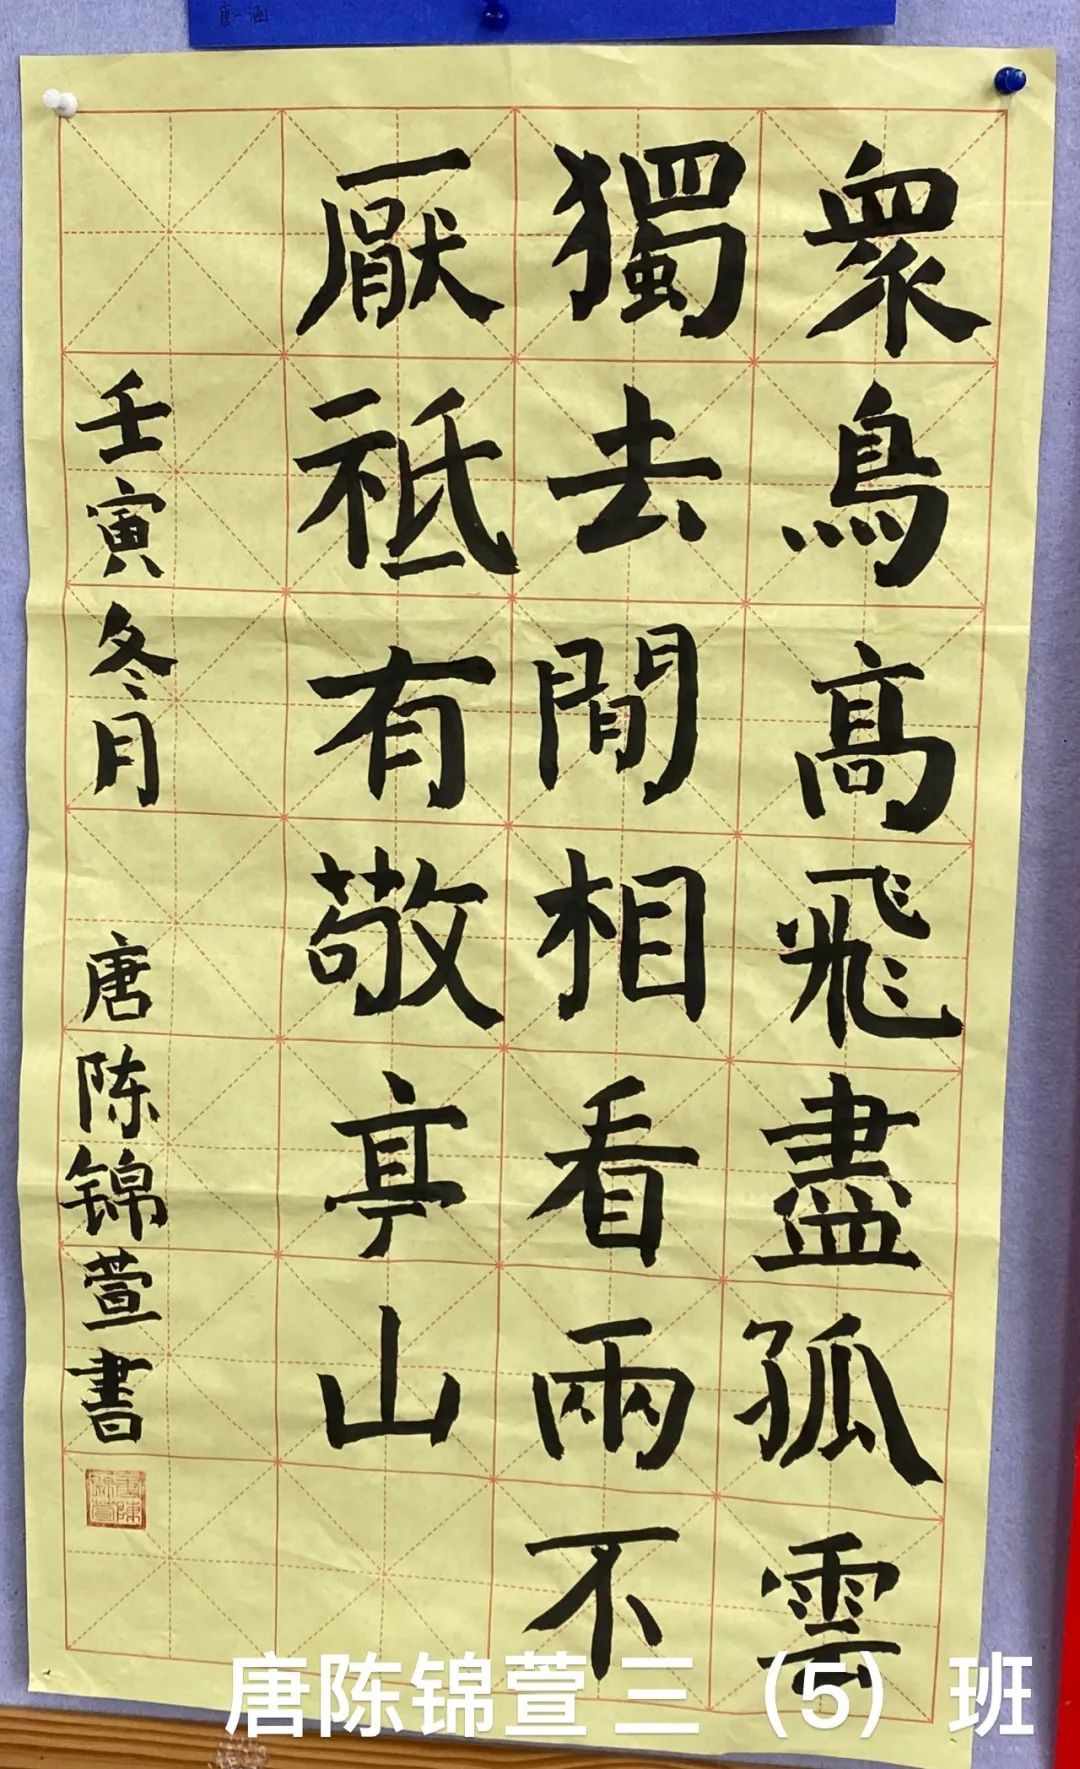 唐一涵
衆鳥高飛盡孤雲
獨去閒相看兩不
厭祗有敬亭山
壬寅冬月 唐陈锦萱書
唐陈锦萱 三（5）班